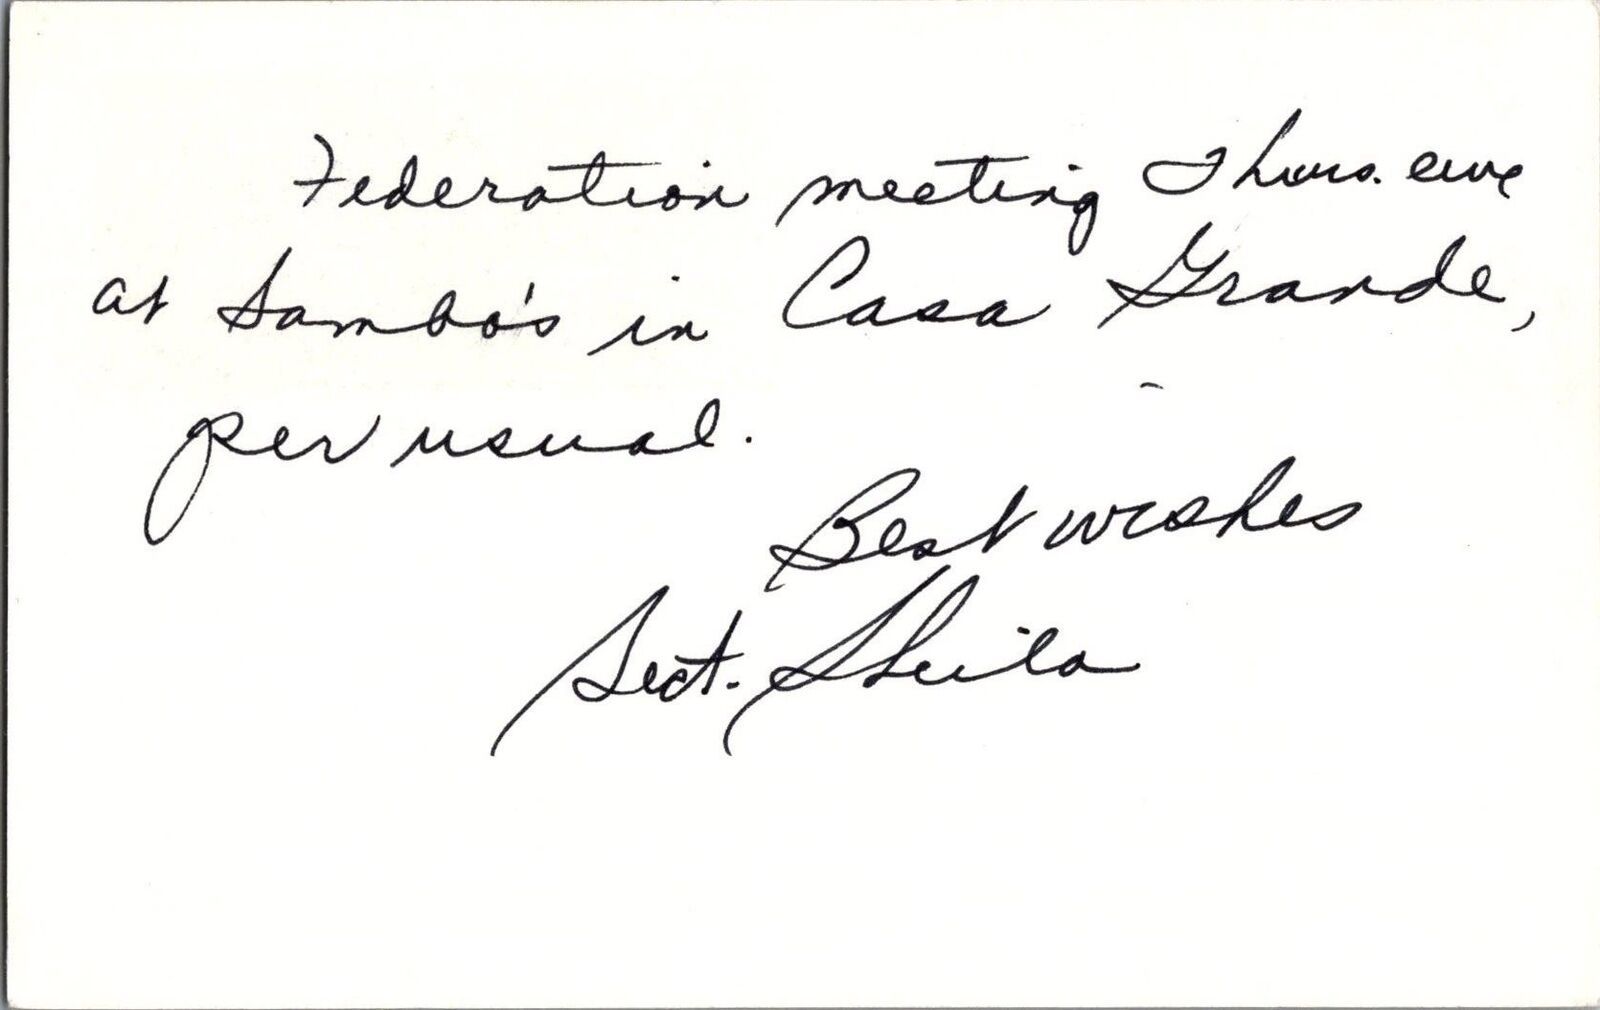 Federation meeting Thurs. eve
at Sambo's in Casa Grande,
per usual.
Best wishes
Sect. Sheila